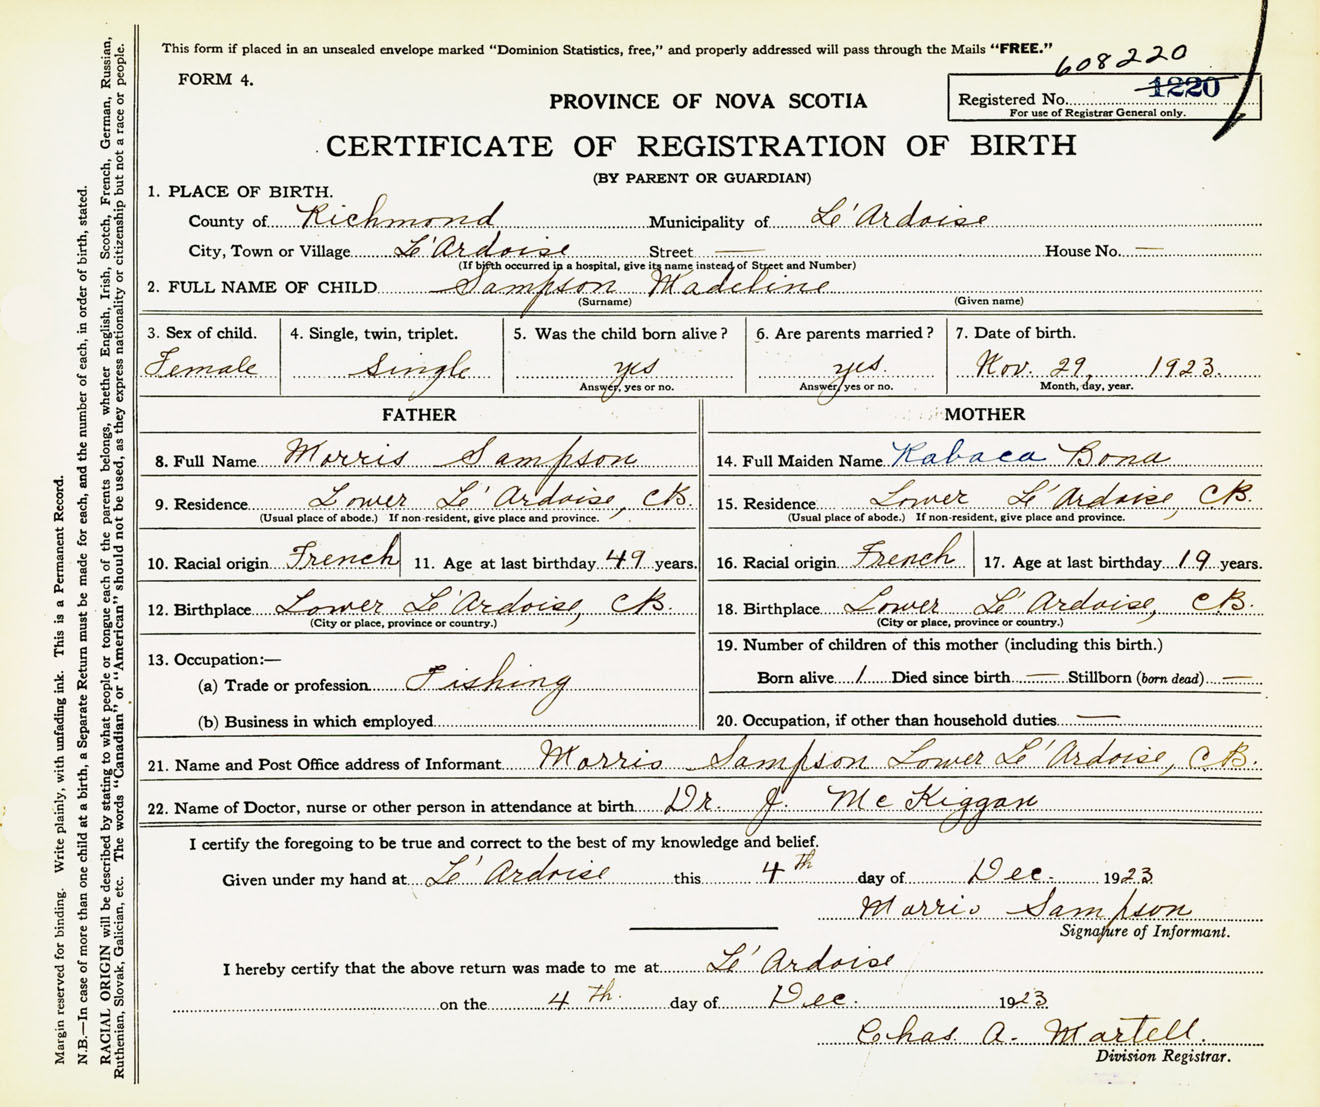 This form if placed in an unsealed envelope marked "Dominion Statistics, free," and properly addressed will pass through the Mails "FREE."
608220
FORM 4.
Registered No. 1220
For use of Registrar General only.
PROVINCE OF NOVA SCOTIA
CERTIFICATE OF REGISTRATION OF BIRTH
(BY PARENT OR GUARDIAN)
1. PLACE OF BIRTH.
County of Richmond Municipality of Le'Ardoise
City, Town or Village Le'Ardoise Street — House No. —
(If birth occurred in a hospital, give its name instead of Street and Number)
2. FULL NAME OF CHILD Sampson Madeline
(Surname) (Given name)
3. Sex of child. 4. Single, twin, triplet. 5. Was the child born alive? 6. Are parents married? 7. Date of birth.
Female Single yes yes. Nov. 29, 1923.
Answer, yes or no. Answer, yes or no. Month, day, year.
FATHER MOTHER
8. Full Name Morris Sampson 14. Full Maiden Name Rabaca Bona
9. Residence Lower Le'Ardoise, CB. 15. Residence Lower Le'Ardoise, CB.
(Usual place of abode.) If non-resident, give place and province. (Usual place of abode.) If non-resident, give place and province.
10. Racial origin French 11. Age at last birthday 49 years. 16. Racial origin French 17. Age at last birthday 19 years.
12. Birthplace Lower Le'Ardoise, CB. 18. Birthplace Lower Le'Ardoise, CB.
(City or place, province or country.) (City or place, province or country.)
13. Occupation:— 19. Number of children of this mother (including this birth.)
(a) Trade or profession Fishing Born alive 1 Died since birth — Stillborn (born dead) —
(b) Business in which employed 20. Occupation, if other than household duties —
21. Name and Post Office address of Informant Morris Sampson Lower Le'Ardoise, CB.
22. Name of Doctor, nurse or other person in attendance at birth Dr. J. McKiggan
I certify the foregoing to be true and correct to the best of my knowledge and belief.
Given under my hand at Le'Ardoise this 4th day of Dec. 1923
Morris Sampson
Signature of Informant.
I hereby certify that the above return was made to me at Le'Ardoise
on the 4th. day of Dec. 1923
Chas. A. Martell.
Division Registrar.
Margin reserved for binding. Write plainly, with unfading ink. This is a Permanent Record.
N.B.—In case of more than one child at a birth, a Separate Return must be made for each, and the number of each, in order of birth, stated.
RACIAL ORIGIN will be described by stating to what people or tongue each of the parents belongs, whether English, Irish, Scotch, French, German, Russian,
Ruthenian, Slovak, Galician, etc. The words "Canadian" or "American" should not be used, as they express nationality or citizenship but not a race or people.